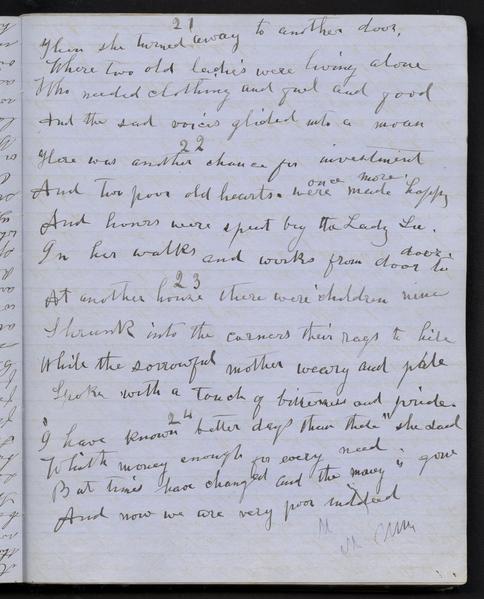 21
Then she turned away to another door,
Where two old ladies were living alone
Who needed clothing and fuel and food
And the sad voices glided into a moan
22
Here was another chance for investment
And two poor old hearts were once more made happy
And hours were spent by the Lady Lu.
In her walks and works from door to door.
23
At another house there were children nine
Shrunk into the corners their rags to hide
While the sorrowful mother weary and pale
Spoke with a touch of bitterness and pride.
24
"I have known better days than these" she said
With money enough for every need
But times have changed and the money is gone
And now we are very poor indeed